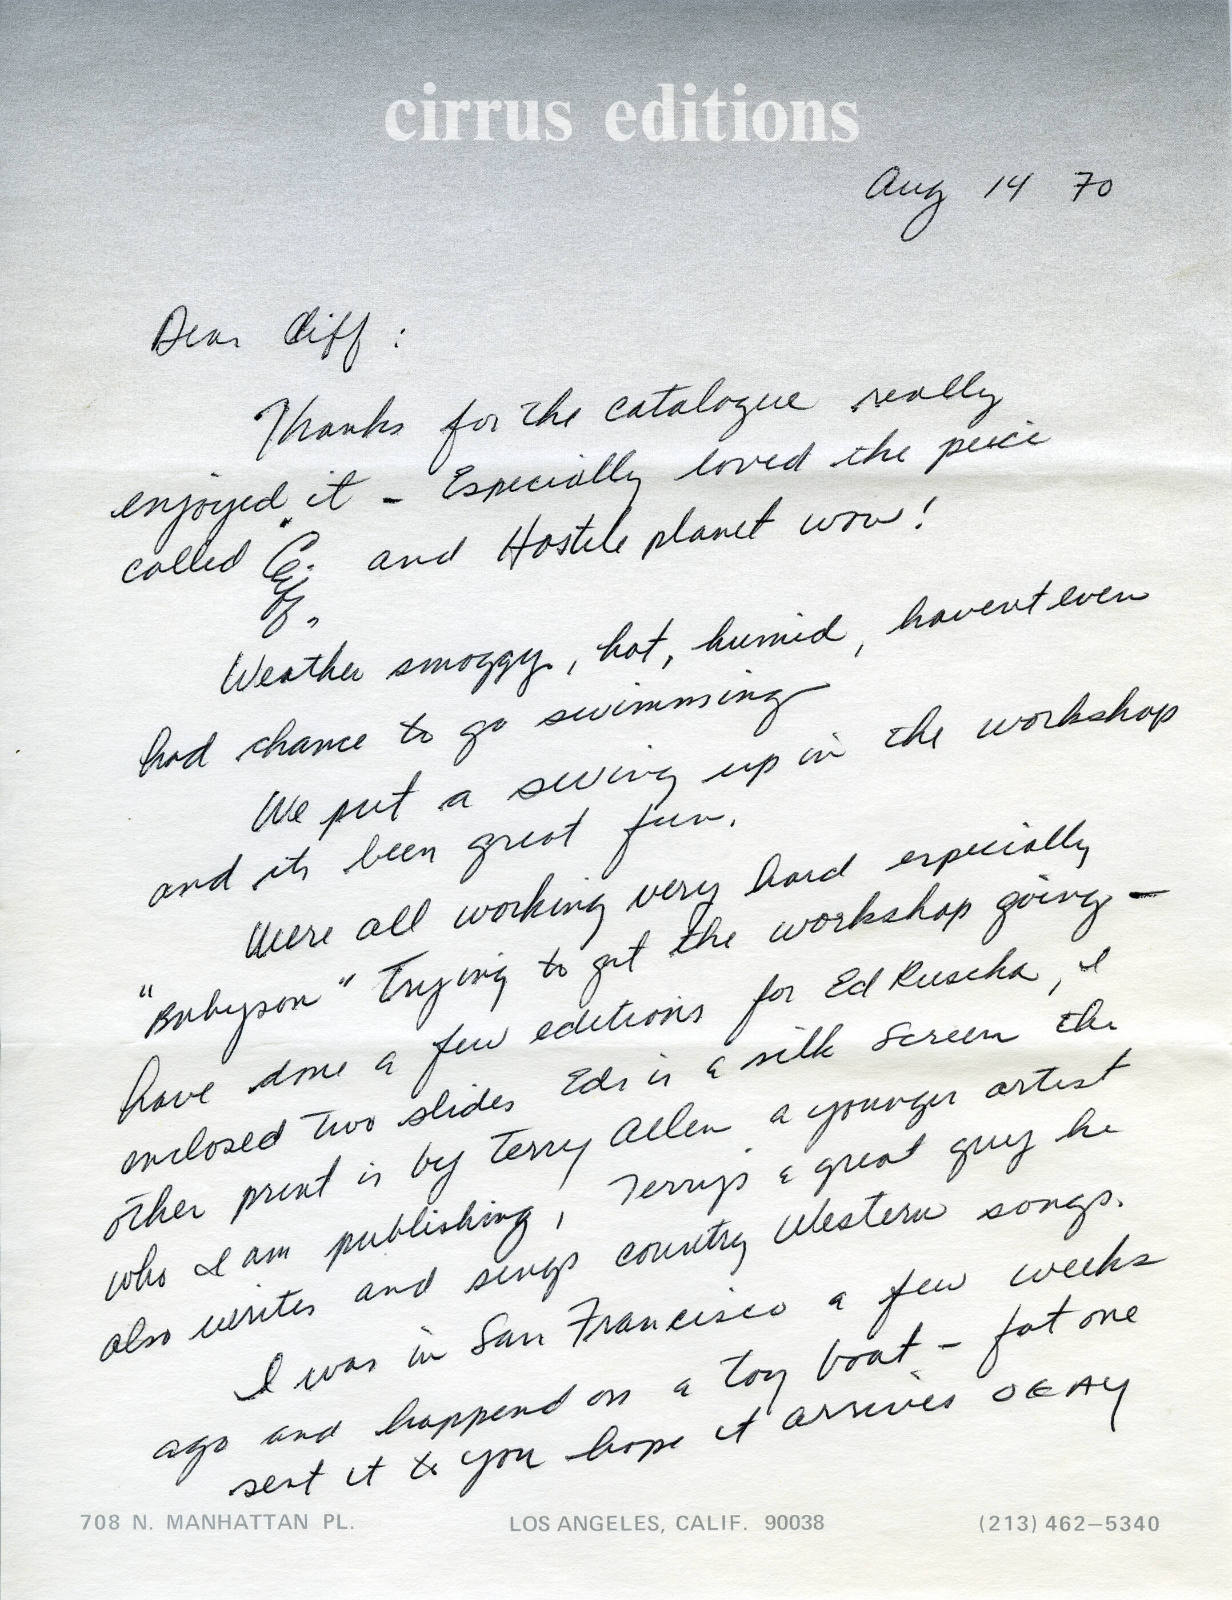 cirrus editions
Aug 14 70
Dear Cliff :
Thanks for the catalogue really
enjoyed it – Especially loved the peice
called " and Hostile planet wow!
Weather smoggy, hot, humid, havent even
had chance to go swimming
We put a swing up in the workshop
and its been great fun.
Were all working very hard especially
" " Trying to get the workshop going –
have done a few editions for Ed Ruscha, I
enclosed two slides Eds is a silk screen the
other print is by Terry Allen a younger artist
who I am publishing, Terrys a great guy he
also writes and sings country Western songs.
I was in San Francisco a few weeks
ago and happend on a toy boat – fat one
sent it to you hope it arrives OKAY
708 N. MANHATTAN PL. LOS ANGELES, CALIF. 90038 (213) 462–5340